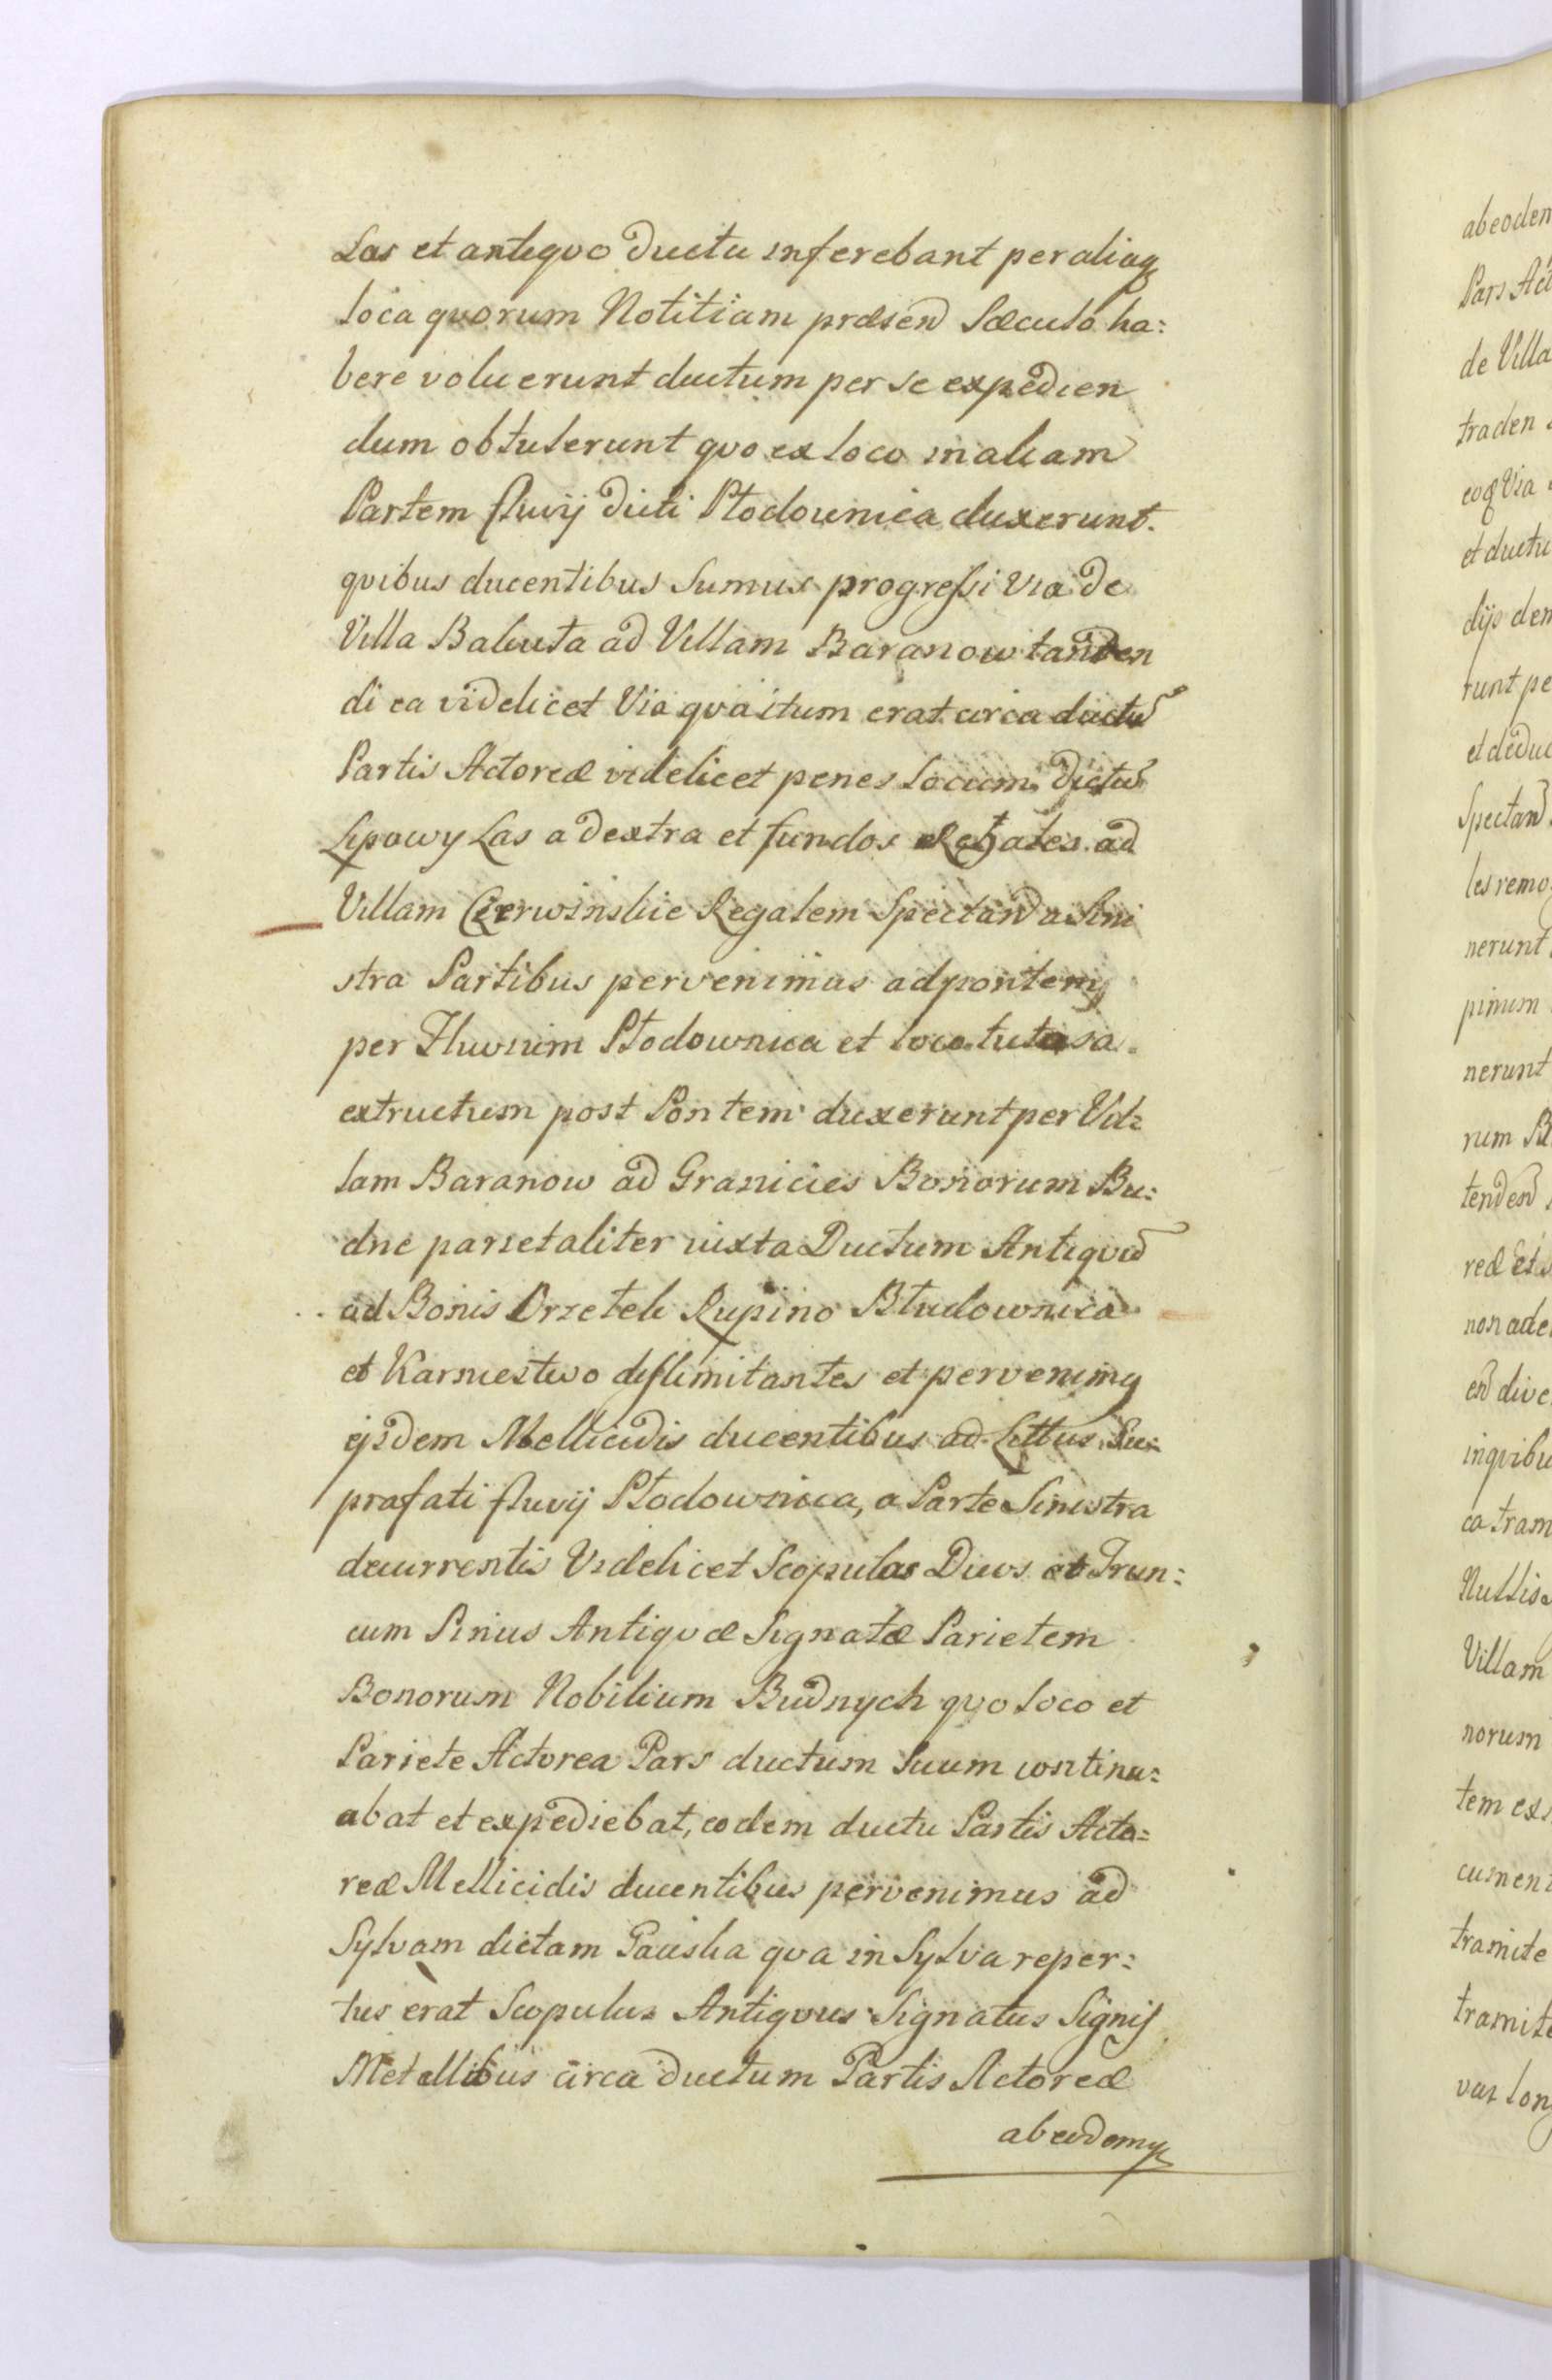 Las et antiquo ductu inferebant per aliaq
loca quorum Notitiam præsend Sæculo ha:
bere voluerunt ductum per se expedien
dum obtulerunt quo ex loco in aliam
Partem fluvij dicti Płodownica duxerunt.
quibus ducentibus Sumus progressi Via de
Villa Baliuta ad Villam Baranow tanden
di ea videlicet Via qva itum erat circa ductū
Partis Actoreæ videlicet penes locum dictū
Lipowy Las a dextra et fundos Regales ad
Villam Czerwinskie Regalem Spectand a Sini
stra Partibus pervenimus ad pontem
per Fluvium Płodownica et loco
extructum post Pontem duxerunt per Vil:
lam Baranow ad Granicies Bonorum Bu:
dne parietaliter iuxta Ductum Antiquū
ad Bonis Orzeteli Rupino Błudownica
et Karniestwo dislimitantes et pervenimq
ejsdem Mellicidis ducentibus ad Littus Su:
prafati fluvij Płodownica, a Parte Sinistra
decurrentis Videlicet Scopulos Duos et Trun:
cum Pinus Antiquæ Signatæ Parietem
Bonorum Nobilium Budnych quo loco et
Pariete Actorea Pars ductum Suum continu:
abat et expediebat, eodem ductu Partis Acto:
reæ Mellicidis ducentibus pervenimus ad
Sylvam dictam qva in Sylva reper:
tus erat Scopulus Antiquus Signatus Signis
Metallibus circa ductum Partis Actoreæ
ab eodemq
abeodem
Pars Act
de Villa
traden
eoq Via
et ductu
dijs dem
runt pe
et deduc
Spectand
les remo
nerunt
pinum
nerunt
rum
tendend
reæ et
non ade
end dive
inquibu
ca tram
Nullis
Villam
norum
tem ex
cument
tramite
tramite
vat lon